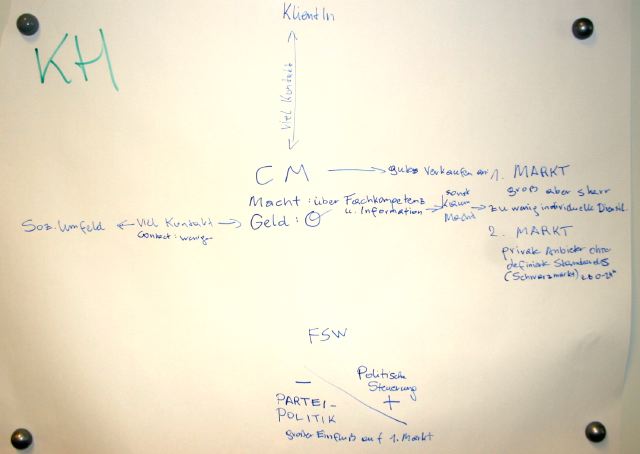 KH
KlientIn
Viel Kontakt
CM
gutes Verkaufen an
1. MARKT
groß aber starr
Macht: über Fachkompetenz
u. Information
sonst
kaum
Macht
zu wenig individuelle
Geld:
Soz. Umfeld
Viel Kontakt
weniger
2. MARKT
private Anbieter ohne
definierte Standards
(Schwarzmarkt)
FSW
Politische
Steuerung
+
–
PARTEI-
POLITIK
großer Einfluß auf 1. Markt